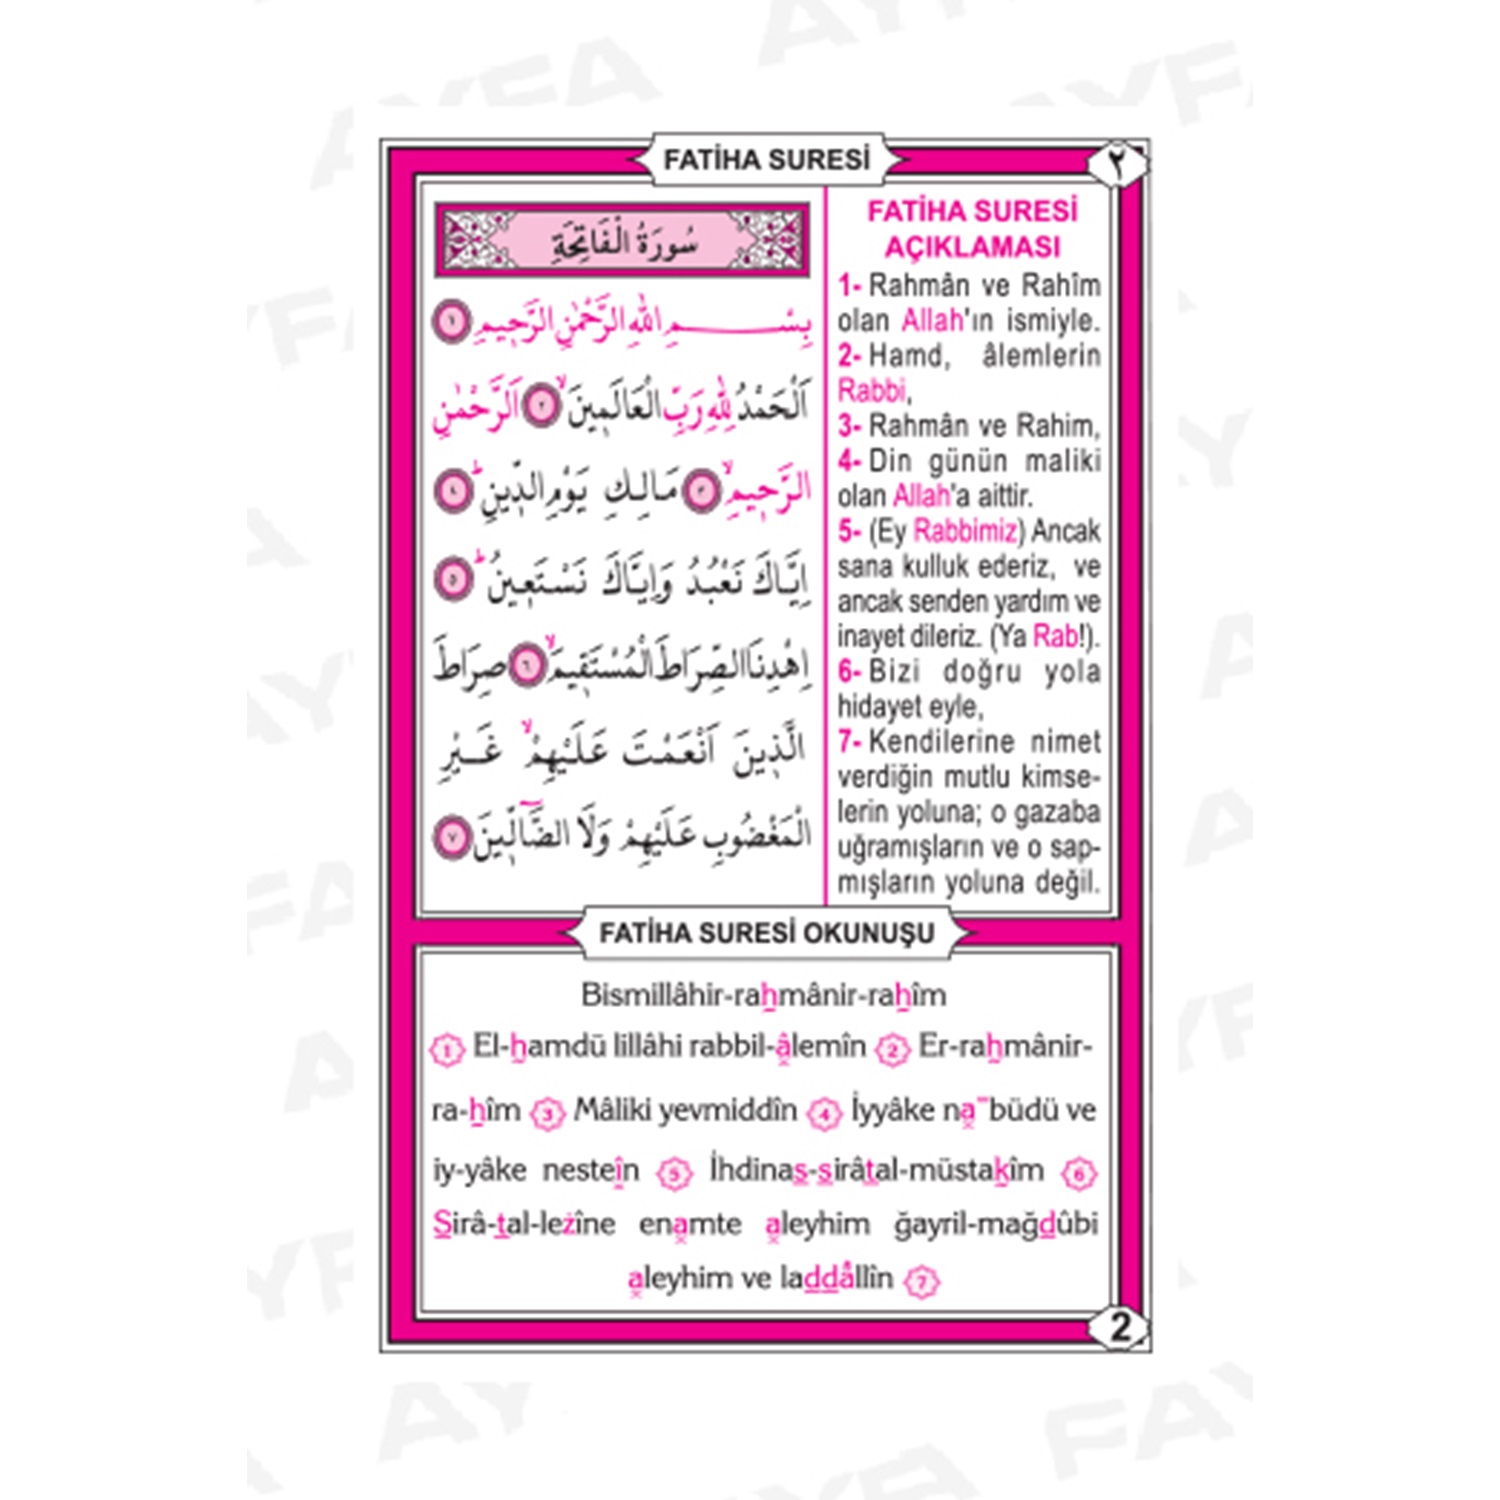 FATİHA SURESİ
٢
سُورَةُ الْفَاتِحَةِ
بِسْمِ اللّٰهِ الرَّحْمٰنِ الرَّحٖيمِ ١
اَلْحَمْدُ لِلّٰهِ رَبِّ الْعَالَمٖينَۙ ٢ اَلرَّحْمٰنِ
الرَّحٖيمِۙ ٣ مَالِكِ يَوْمِ الدّٖينِؕ ٤
اِيَّاكَ نَعْبُدُ وَاِيَّاكَ نَسْتَعٖينُؕ ٥
اِهْدِنَا الصِّرَاطَ الْمُسْتَقٖيمَۙ ٦ صِرَاطَ
الَّذٖينَ اَنْعَمْتَ عَلَيْهِمْۙ غَيْرِ
الْمَغْضُوبِ عَلَيْهِمْ وَلَا الضَّٓالّٖينَ ٧
FATİHA SURESİ
AÇIKLAMASI
1- Rahmân ve Rahîm
olan Allah'ın ismiyle.
2- Hamd, âlemlerin
Rabbi,
3- Rahmân ve Rahim,
4- Din günün maliki
olan Allah'a aittir.
5- (Ey Rabbimiz) Ancak
sana kulluk ederiz, ve
ancak senden yardım ve
inayet dileriz. (Ya Rab!).
6- Bizi doğru yola
hidayet eyle,
7- Kendilerine nimet
verdiğin mutlu kimse-
lerin yoluna; o gazaba
uğramışların ve o sap-
mışların yoluna değil.
FATİHA SURESİ OKUNUŞU
Bismillâhir-rahmânir-rahîm
1 El-hamdü lillâhi rabbil-âlemîn 2 Er-rahmânir-
ra-hîm 3 Mâliki yevmiddîn 4 İyyâke na¯büdü ve
iy-yâke nesteîn 5 İhdinas-sirâtal-müstakîm 6
Sirâ-tal-leżîne enamte aleyhim ğayril-mağdûbi
aleyhim ve laddâllîn 7
2